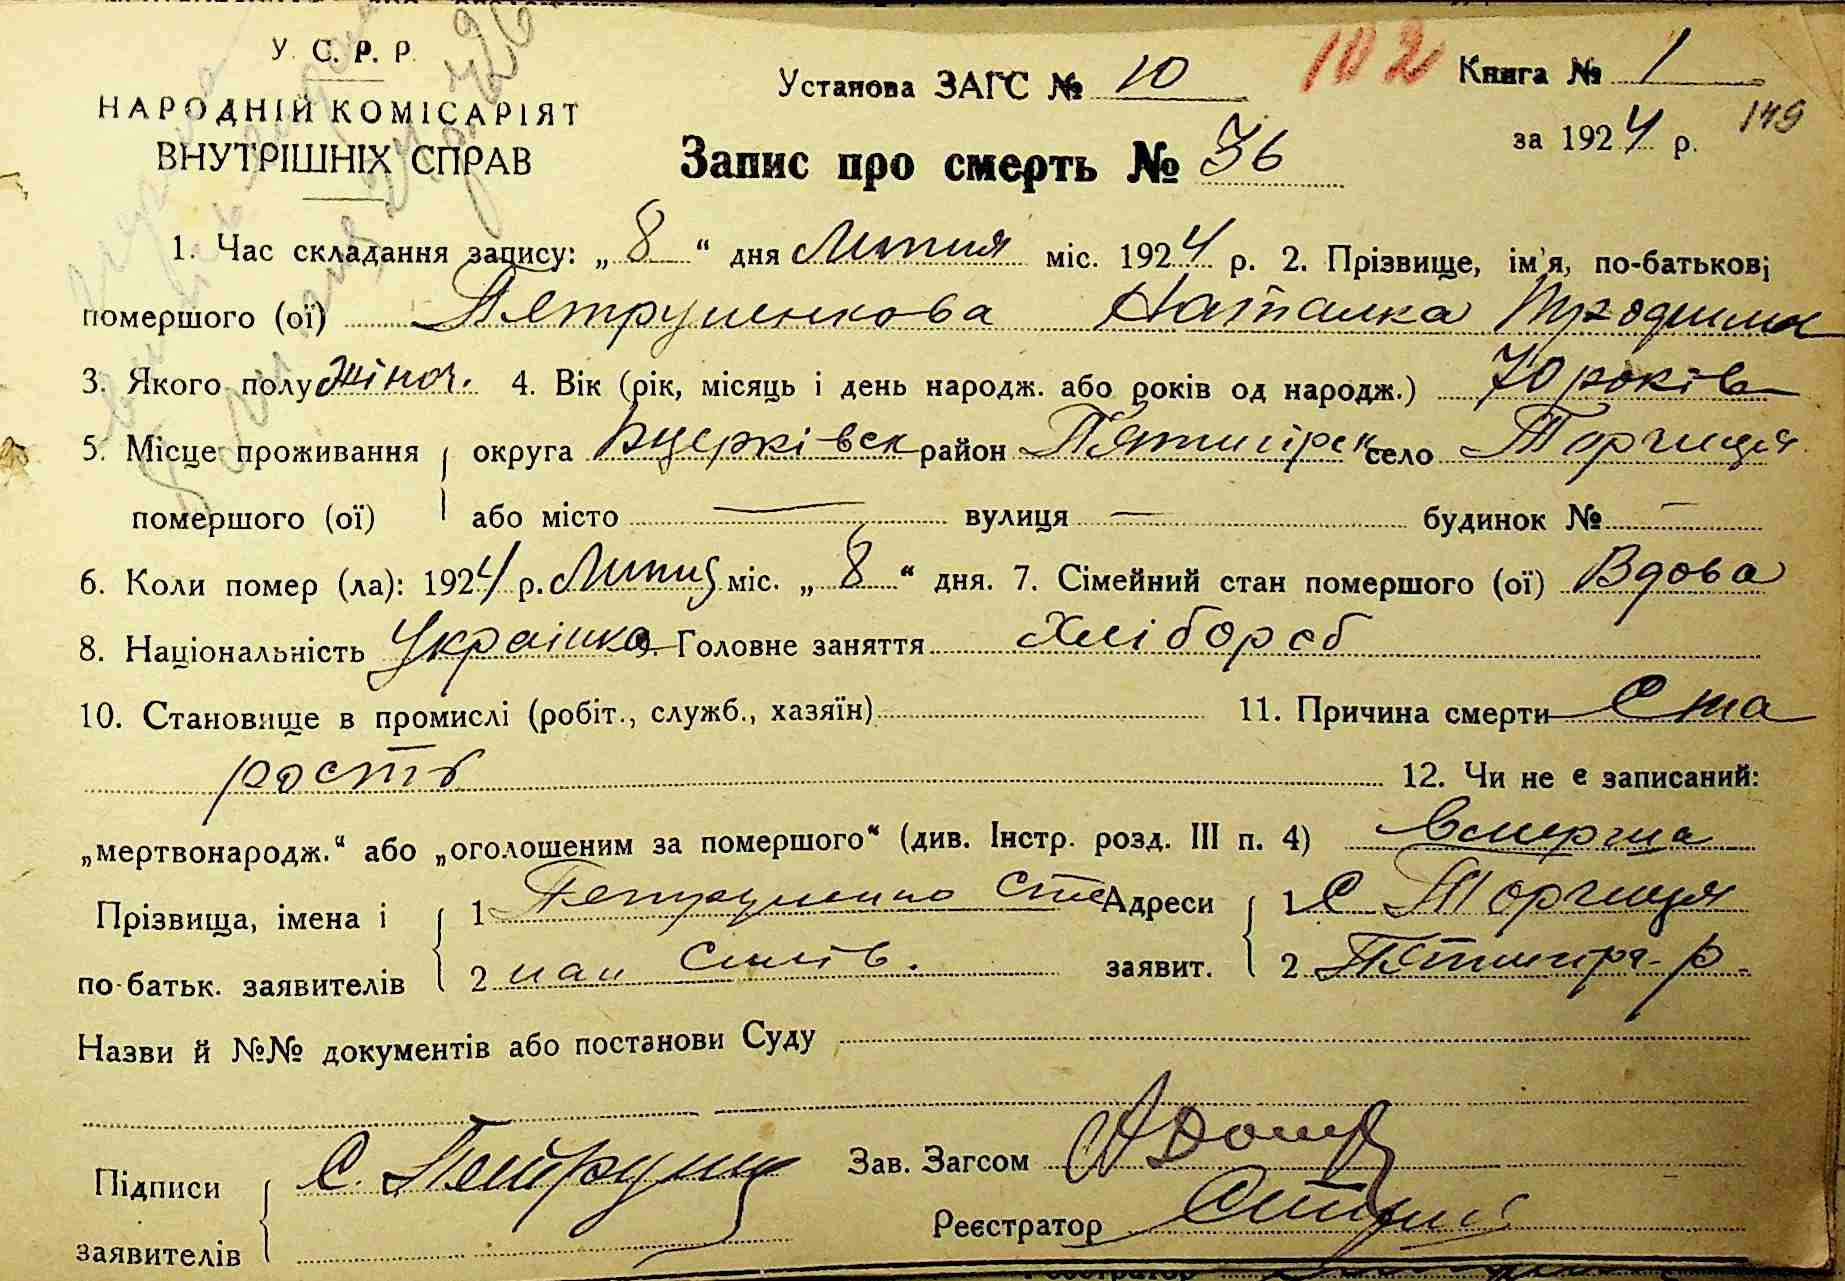 У. С. Р. Р.
НАРОДНІЙ КОМІСАРІЯТ
ВНУТРІШНІХ СПРАВ
Установа ЗАГС № 10
102
Книга № 1
за 1924 р.
149
Запис про смерть № 36
1. Час складання запису: „ 8 “ дня Липня міс. 1924 р. 2. Прізвище, ім'я, по-батькові
помершого (ої) Петрушенкова Наталка
3. Якого полу жіноч. 4. Вік (рік, місяць і день народж. або років од народж.) 70 років
5. Місце проживання округа Бцерківськ район Пятигірськ село Торчиця
помершого (ої) або місто — вулиця — будинок № —
6. Коли помер (ла): 1924 р. Липня міс. „ 8 “ дня. 7. Сімейний стан помершого (ої) Вдова
8. Національність Українка 9. Головне заняття Хлібороб
10. Становище в промислі (робіт., служб., хазяїн) 11. Причина смерти Ста
рость 12. Чи не є записаний:
„мертвонародж.“ або „оголошеним за помершого“ (див. Інстр. розд. III п. 4) Вмерша
Прізвища, імена і 1 Петрушенко Сте Адреси 1 С Торчиця
по-батьк. заявителів 2 пан заявит. 2 р.
Назви й №№ документів або постанови Суду
Підписи С. Зав. Загсом
заявителів Реєстратор